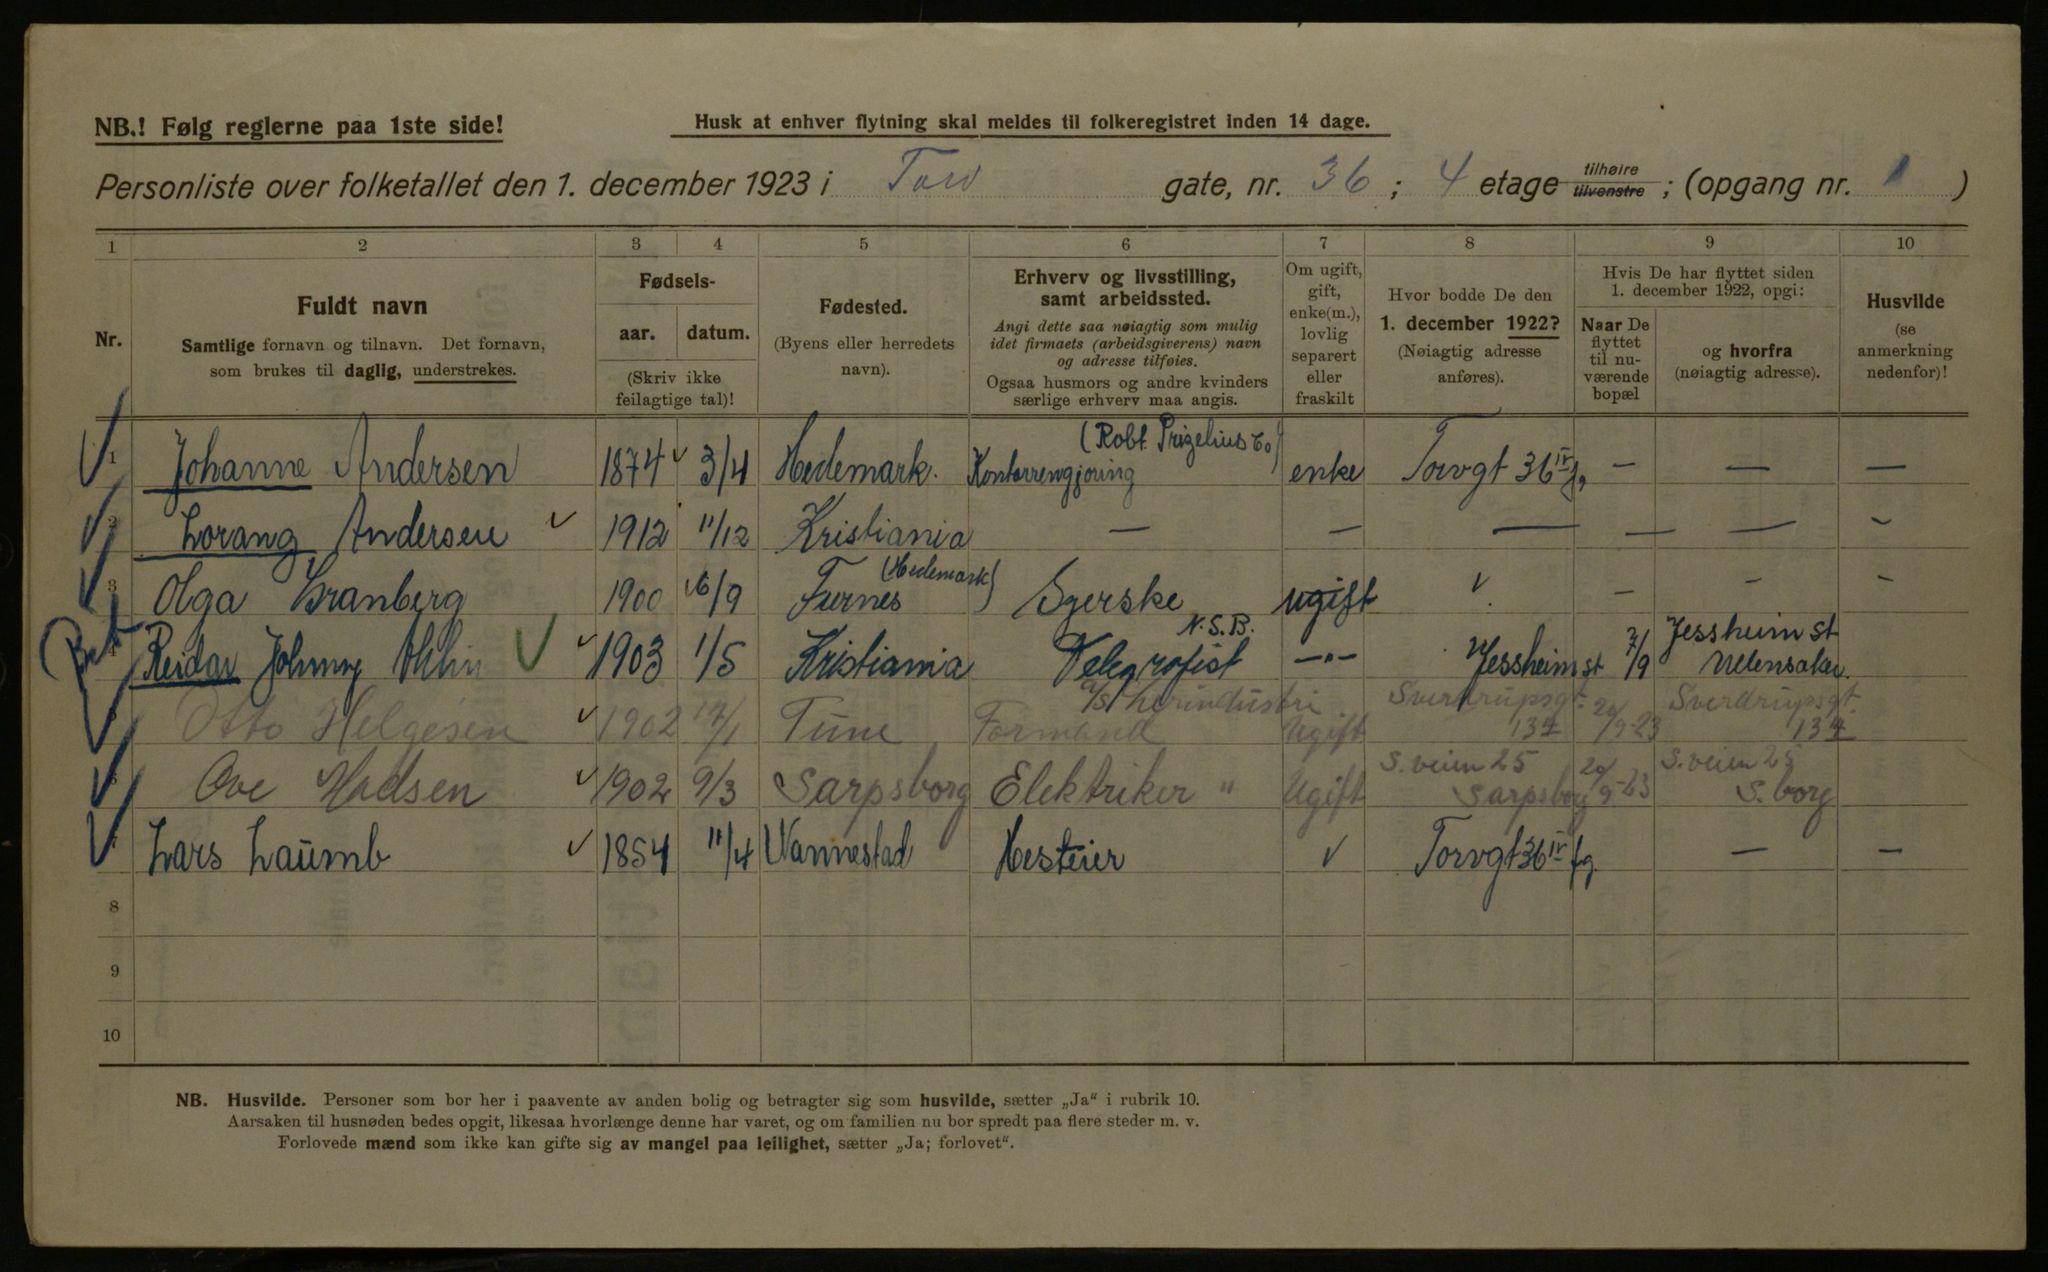 NB.! Følg reglerne paa 1ste side!
Husk at enhver flytning skal meldes til folkeregistret inden 14 dage.
Personliste over folketallet den 1. december 1923 i Torv gate, nr. 36 ; 4 etage tilhøire tilvenstre ; (opgang nr. 1 )
1 2 3 4 5 6 7 8 9 10
Nr.
Fuldt navn
Samtlige fornavn og tilnavn. Det fornavn,
som brukes til daglig, understrekes.
Fødsels-
aar. datum.
(Skriv ikke
feilagtige tal)!
Fødested.
(Byens eller herredets
navn).
Erhverv og livsstilling,
samt arbeidssted.
Angi dette saa nøiagtig som mulig
idet firmaets (arbeidsgiverens) navn
og adresse tilføies.
Ogsaa husmors og andre kvinders
særlige erhverv maa angis.
Om ugift,
gift,
enke(m.),
lovlig
separert
eller
fraskilt
Hvor bodde De den
1. december 1922?
(Nøiagtig adresse
anføres).
Hvis De har flyttet siden
1. december 1922, opgi:
Naar De
flyttet
til nu-
værende
bopæl
og hvorfra
(nøiagtig adresse).
Husvilde
(se
anmerkning
nedenfor)!
(Robt. Prizelius Co)
1 Johanne Andersen 1874 3/4 Hedemark. Kontorrengjøring enke Torvgt 36 IV — — —
2 Lorang Andersen 1912 11/12 Kristiania — — — — — -
(Hedemark)
3 Olga Granberg 1900 6/9 Furnes Syerske ugift — - -
N.S.B. Jessheim st
4 Reidar Johnny 1903 1/5 Kristiania Telegrafist —"— Jessheim st 2/9 Ullensaker.
A/S Sverdrupsgt. Sverdrupsgt.
Otto Helgesen 1902 17/1 Tune Formand Ugift 13 20/9-23 13
S. veien 25 S. veien 25
Ove Madsen 1902 9/3 Sarpsborg Elektriker " Ugift Sarpsborg 20/9-23 S. borg
Lars Laumb 1854 11/4 Vannestad Hesteier Torvgt 36 IV — —
8
9
10
NB. Husvilde. Personer som bor her i paavente av anden bolig og betragter sig som husvilde, sætter „Ja“ i rubrik 10.
Aarsaken til husnøden bedes opgit, likesaa hvorlænge denne har varet, og om familien nu bor spredt paa flere steder m. v.
Forlovede mænd som ikke kan gifte sig av mangel paa leilighet, sætter „Ja; forlovet“.